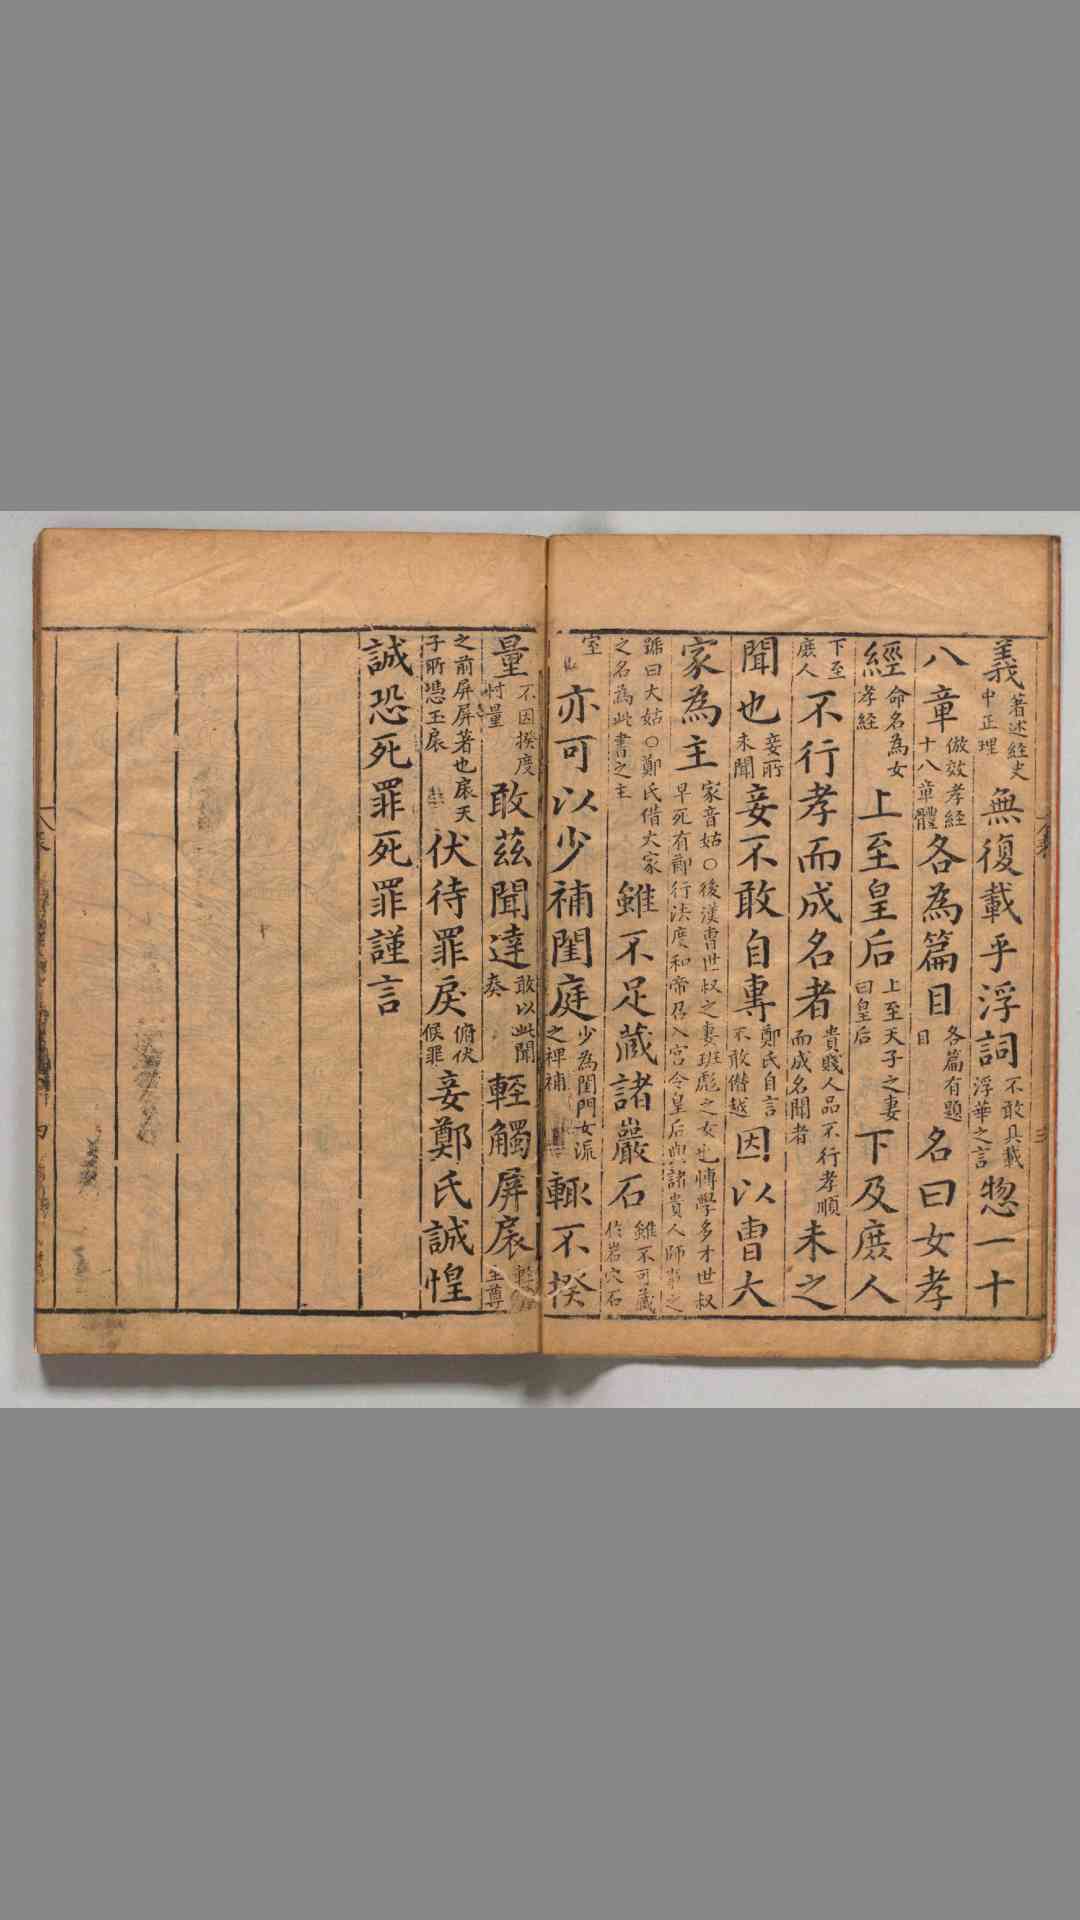 義著述經史中正理無復載乎浮詞不敢具載浮華之言惣一十
八章倣效孝經十八章體各為篇目各篇有題目名曰女孝
經命名為女孝經上至皇后上至天子之妻曰皇后下及庶人
下至庶人不行孝而成名者貴賤人品不行孝順而成名聞者未之
聞也妾所未聞妾不敢自專鄭氏自言不敢僣越因以曹大
家為主家音姑○後漢曹世叔之妻班彪之女也博學多才世叔早死有節行法度和帝召入宮令皇后與諸貴人師事之
號曰大姑○鄭氏借大家之名為此書之主雖不足藏諸巖石雖不可藏於岩穴石
室亦可以少補閨庭少為閨門女流之裨補輙不揆
量不因揆度忖量敢茲聞達敢以此聞奏輕觸屏扆至尊
之前屏屏著也扆天子所憑玉扆伏待罪戾俯伏候罪妾鄭氏誠惶
誠恐死罪死罪謹言